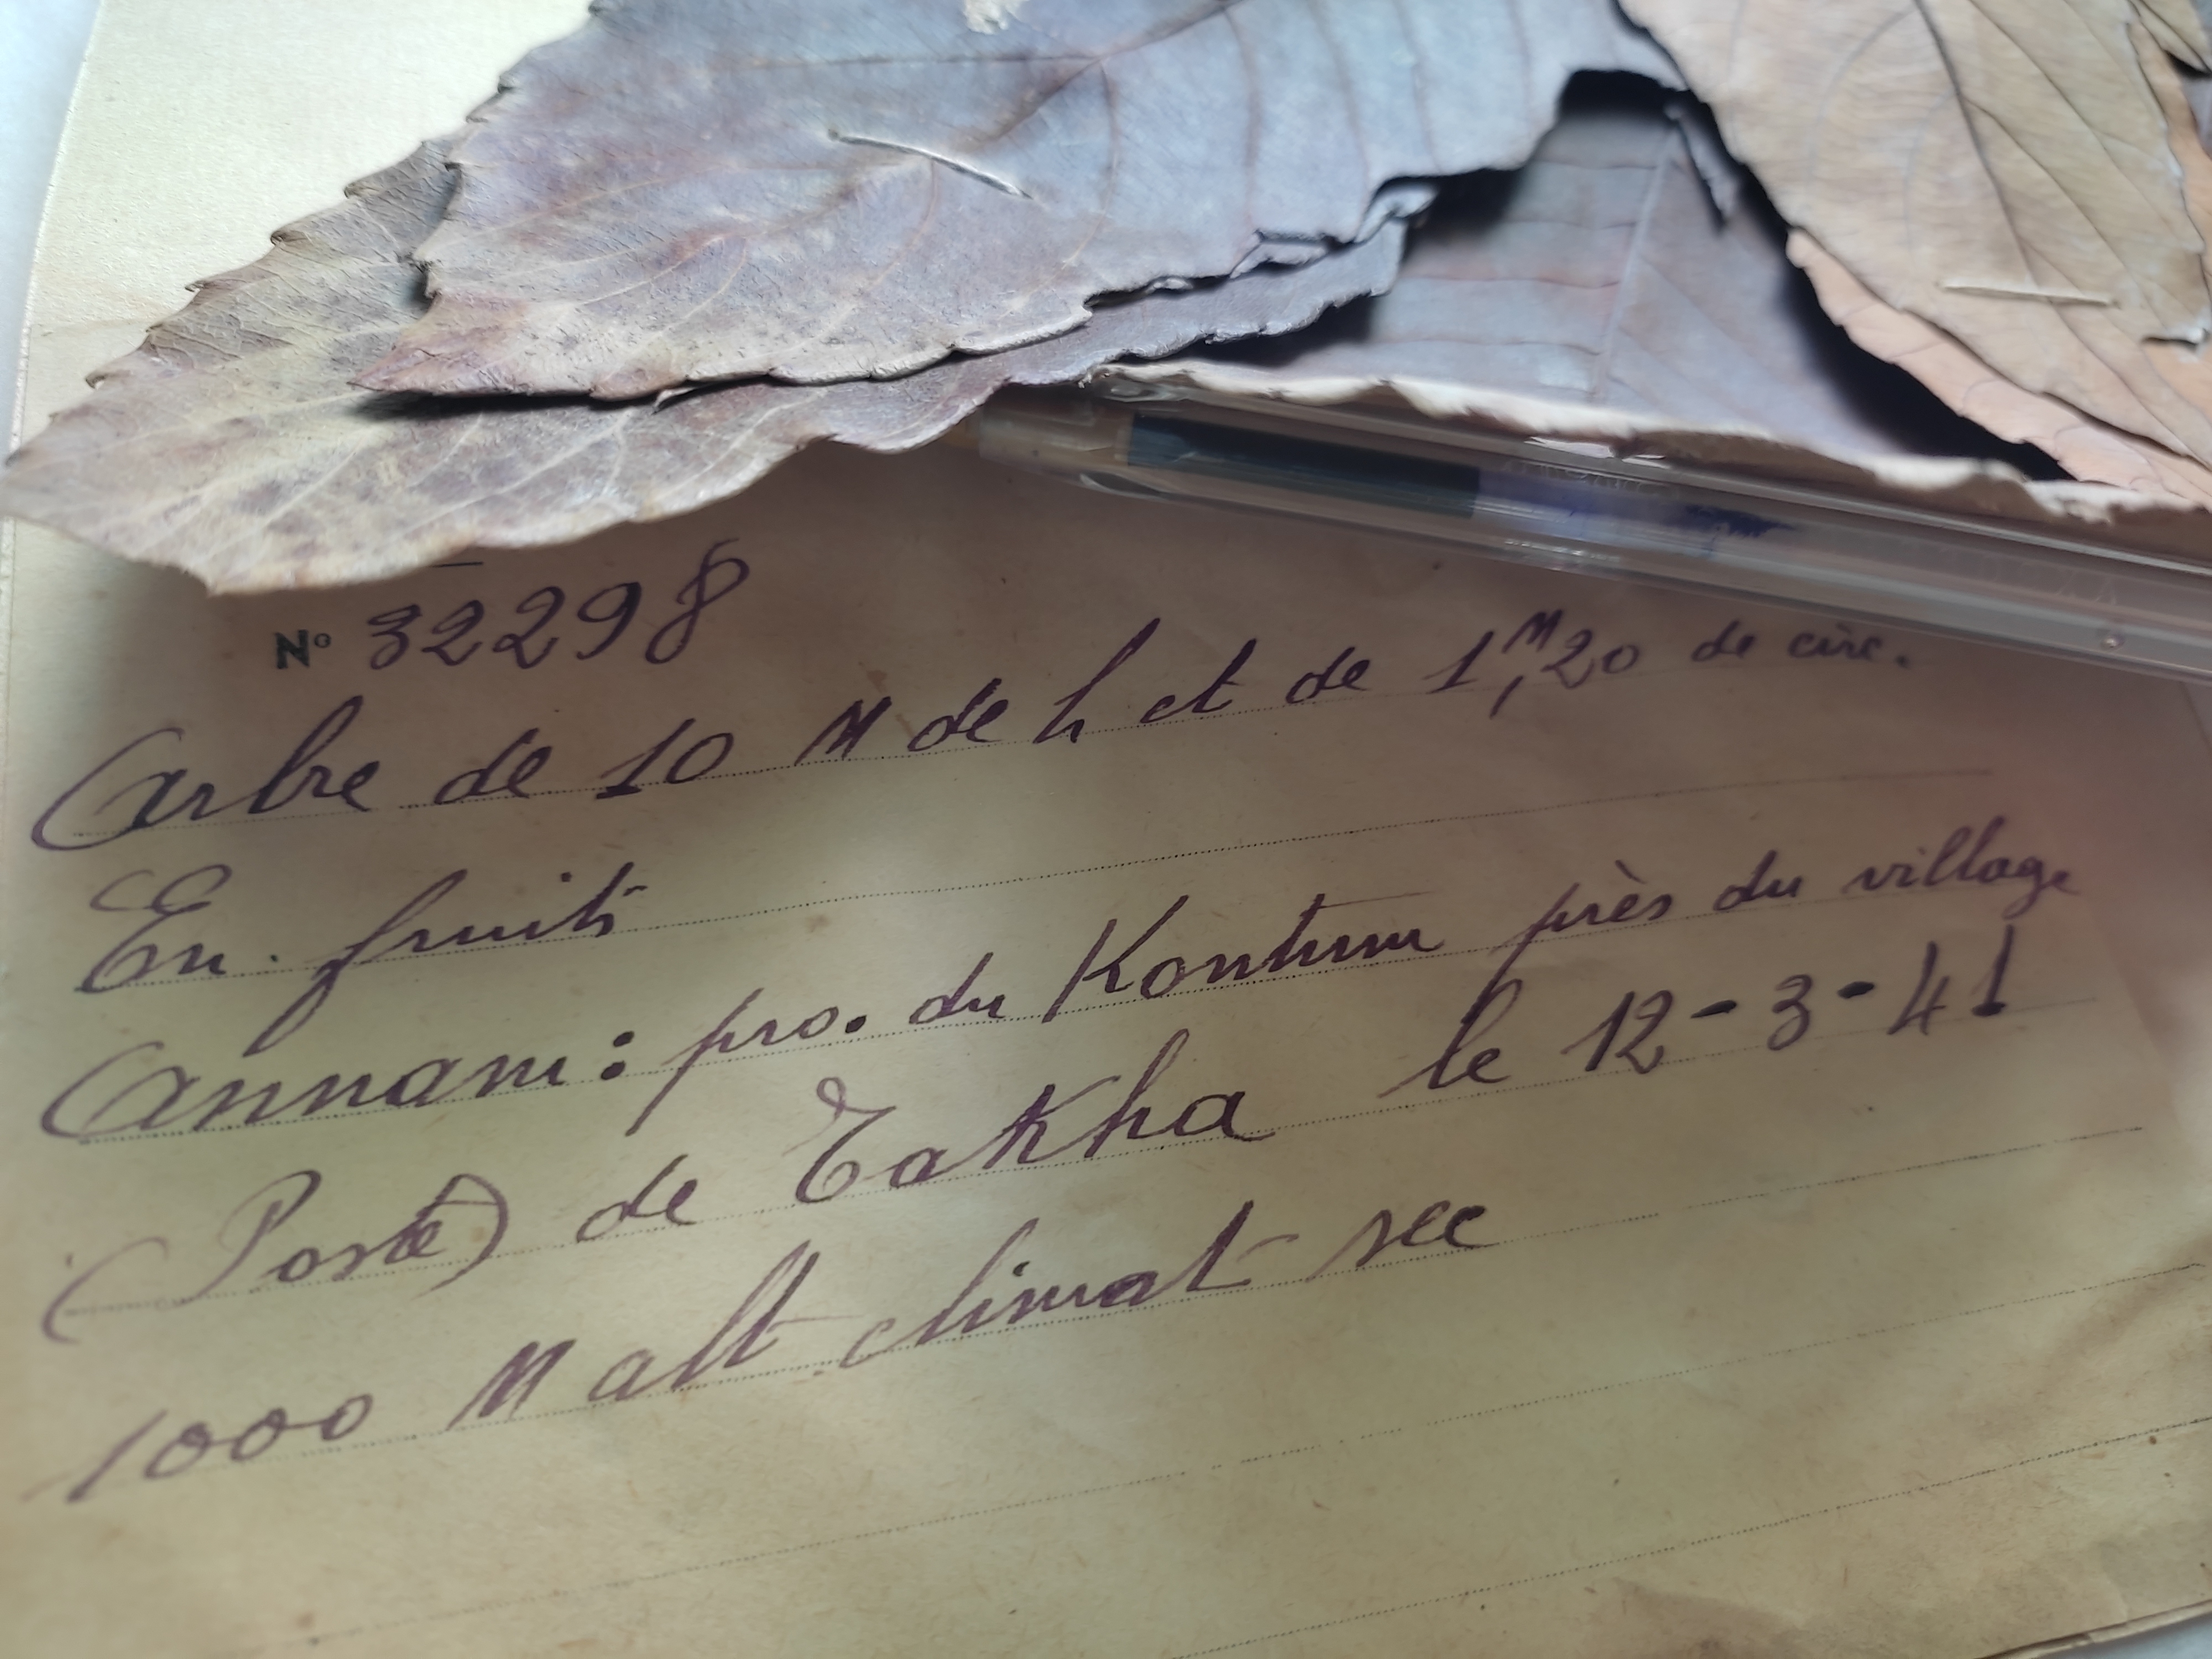 N° 32298
Arbre de 10 M de h et de 1,M20 de circ.
En fruits
Annam: pro. du Kontum près du village
(Poste) de Takha le 12-3-41
1000 M alt climat sec